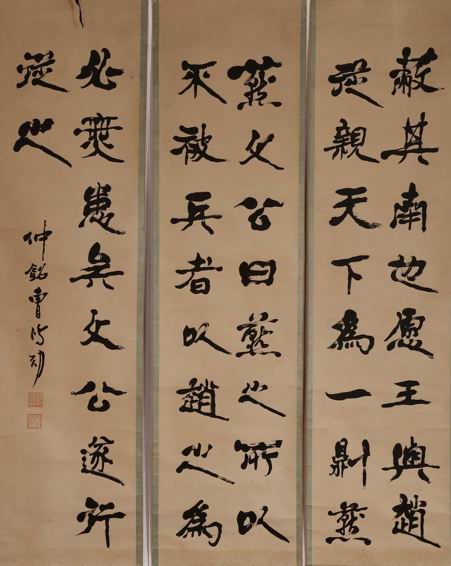 蔽其南也愿王與趙
從親天下為一則燕
燕文公曰燕之所以
不被兵者以趙之為
必無患矣文公遂
從之
仲銘曹鴻勛